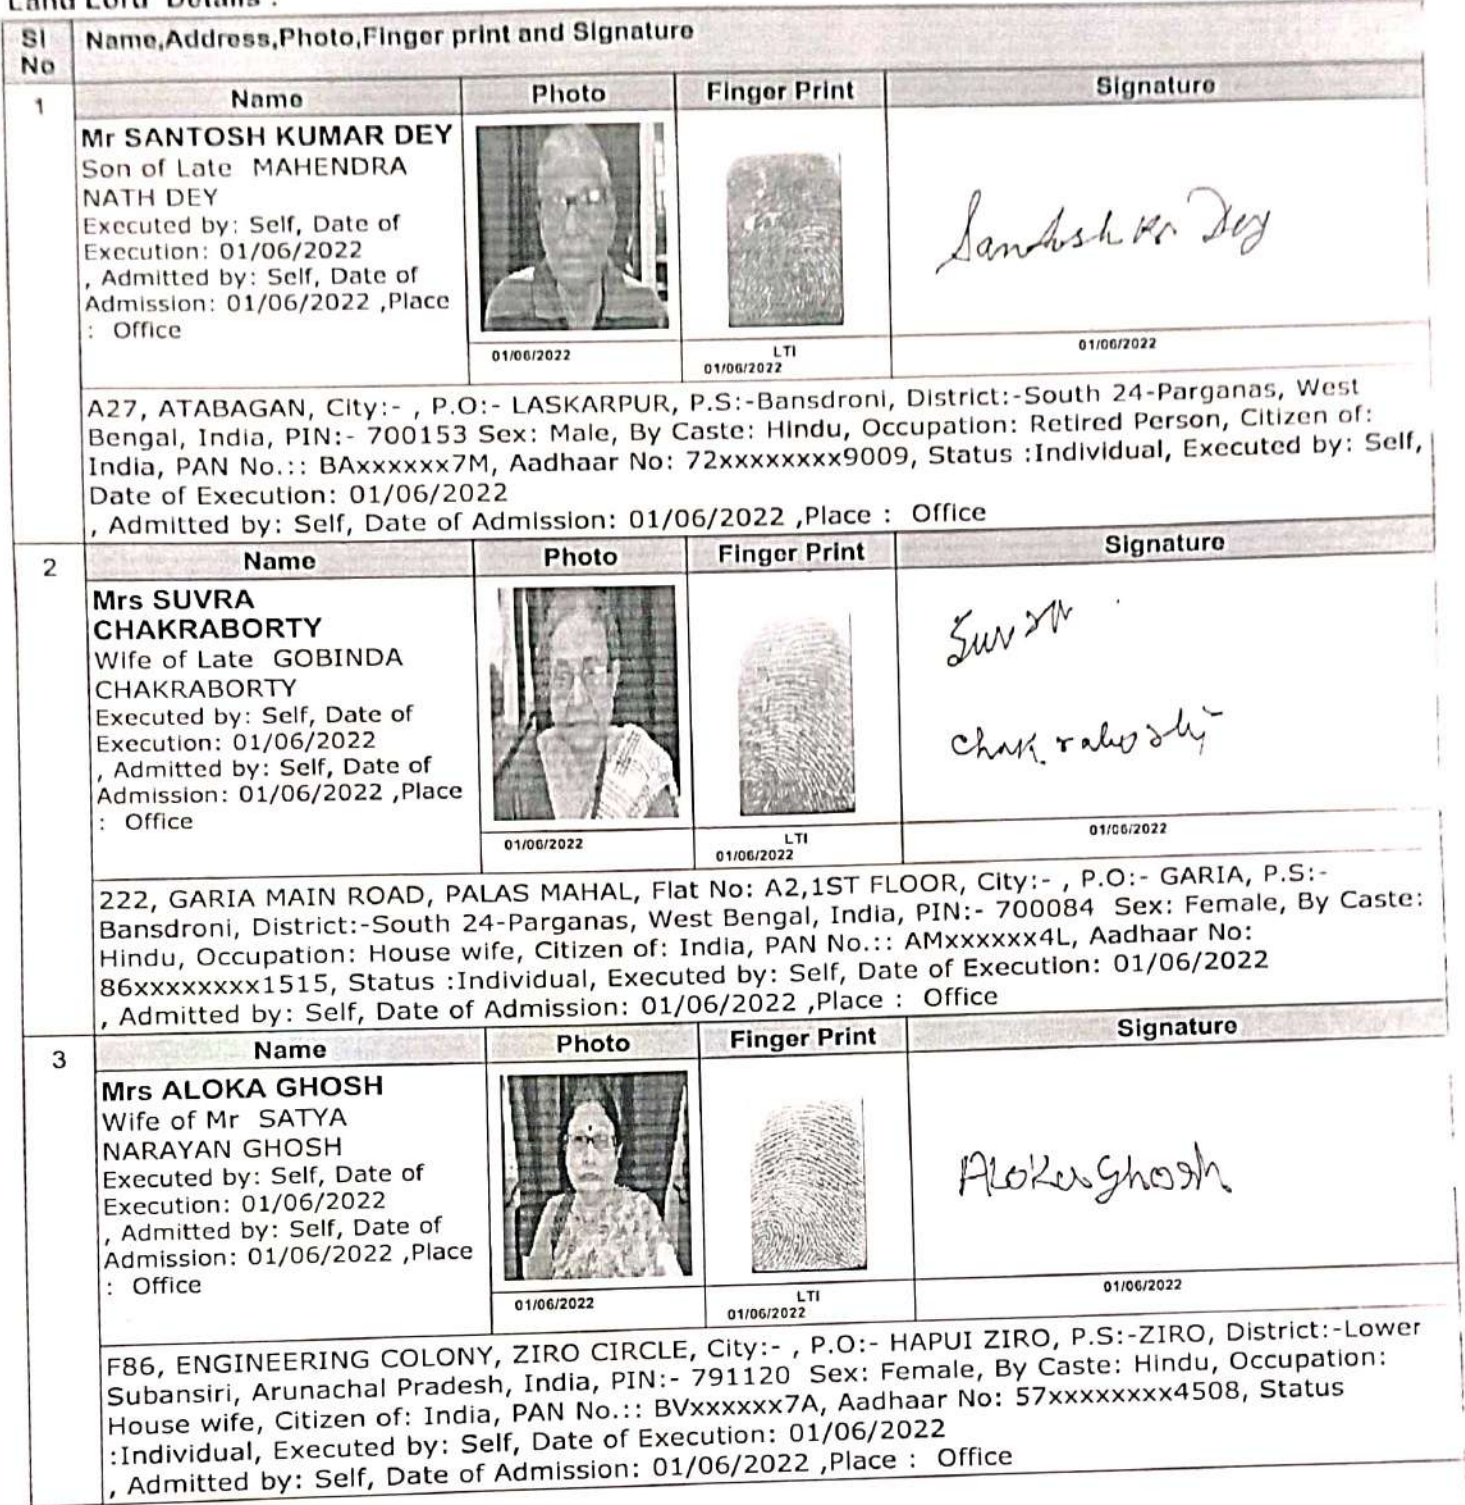 Land Lord Details :
SI No
Name,Address,Photo,Finger print and Signature
1
Name
Photo
Finger Print
Signature
Mr SANTOSH KUMAR DEY
Son of Late MAHENDRA
NATH DEY
Executed by: Self, Date of
Execution: 01/06/2022
, Admitted by: Self, Date of
Admission: 01/06/2022 ,Place
: Office
Santosh Kr Dey
01/06/2022
LTI
01/06/2022
01/06/2022
A27, ATABAGAN, City:- , P.O:- LASKARPUR, P.S:-Bansdroni, District:-South 24-Parganas, West
Bengal, India, PIN:- 700153 Sex: Male, By Caste: Hindu, Occupation: Retired Person, Citizen of:
India, PAN No.:: BAxxxxxx7M, Aadhaar No: 72xxxxxxxx9009, Status :Individual, Executed by: Self,
Date of Execution: 01/06/2022
, Admitted by: Self, Date of Admission: 01/06/2022 ,Place : Office
2
Name
Photo
Finger Print
Signature
Mrs SUVRA
CHAKRABORTY
Wife of Late GOBINDA
CHAKRABORTY
Executed by: Self, Date of
Execution: 01/06/2022
, Admitted by: Self, Date of
Admission: 01/06/2022 ,Place
: Office
Suvra
Chakraborty
01/06/2022
LTI
01/06/2022
01/06/2022
222, GARIA MAIN ROAD, PALAS MAHAL, Flat No: A2,1ST FLOOR, City:- , P.O:- GARIA, P.S:-
Bansdroni, District:-South 24-Parganas, West Bengal, India, PIN:- 700084 Sex: Female, By Caste:
Hindu, Occupation: House wife, Citizen of: India, PAN No.:: AMxxxxxx4L, Aadhaar No:
86xxxxxxxx1515, Status :Individual, Executed by: Self, Date of Execution: 01/06/2022
, Admitted by: Self, Date of Admission: 01/06/2022 ,Place : Office
3
Name
Photo
Finger Print
Signature
Mrs ALOKA GHOSH
Wife of Mr SATYA
NARAYAN GHOSH
Executed by: Self, Date of
Execution: 01/06/2022
, Admitted by: Self, Date of
Admission: 01/06/2022 ,Place
: Office
Aloka Ghosh
01/06/2022
LTI
01/06/2022
01/06/2022
F86, ENGINEERING COLONY, ZIRO CIRCLE, City:- , P.O:- HAPUI ZIRO, P.S:-ZIRO, District:-Lower
Subansiri, Arunachal Pradesh, India, PIN:- 791120 Sex: Female, By Caste: Hindu, Occupation:
House wife, Citizen of: India, PAN No.:: BVxxxxxx7A, Aadhaar No: 57xxxxxxxx4508, Status
:Individual, Executed by: Self, Date of Execution: 01/06/2022
, Admitted by: Self, Date of Admission: 01/06/2022 ,Place : Office